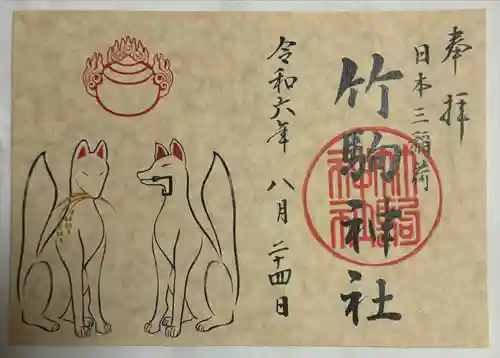 奉拝
日本三稲荷
竹駒神社
令和六年 八月 二十四日
竹駒神社